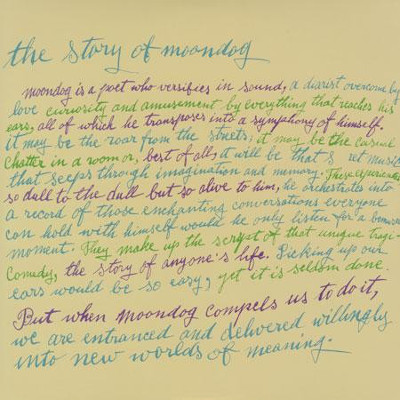 the story of moondog
moondog is a poet who versifies in sound, a diarist overcome by
love curiosity and amusement by everything that reaches his
ears, all of which he transposes into a symphony of himself.
it may be the roar from the streets, it may be the casual
chatter in a room or, best of all, it will be that s ret music
that seeps through imagination and memory. These experiences
so dull to the dull but so alive to him, he orchestrates into
a record of those enchanting conversations everyone
can hold with himself would he only listen for a
moment. They make up the script of that unique tragi-
comedy, the story of anyone's life. Picking up our
ears would be so easy, yet it is seldom done.
But when moondog compels us to do it,
we are entranced and delivered willingly
into new worlds of meaning.